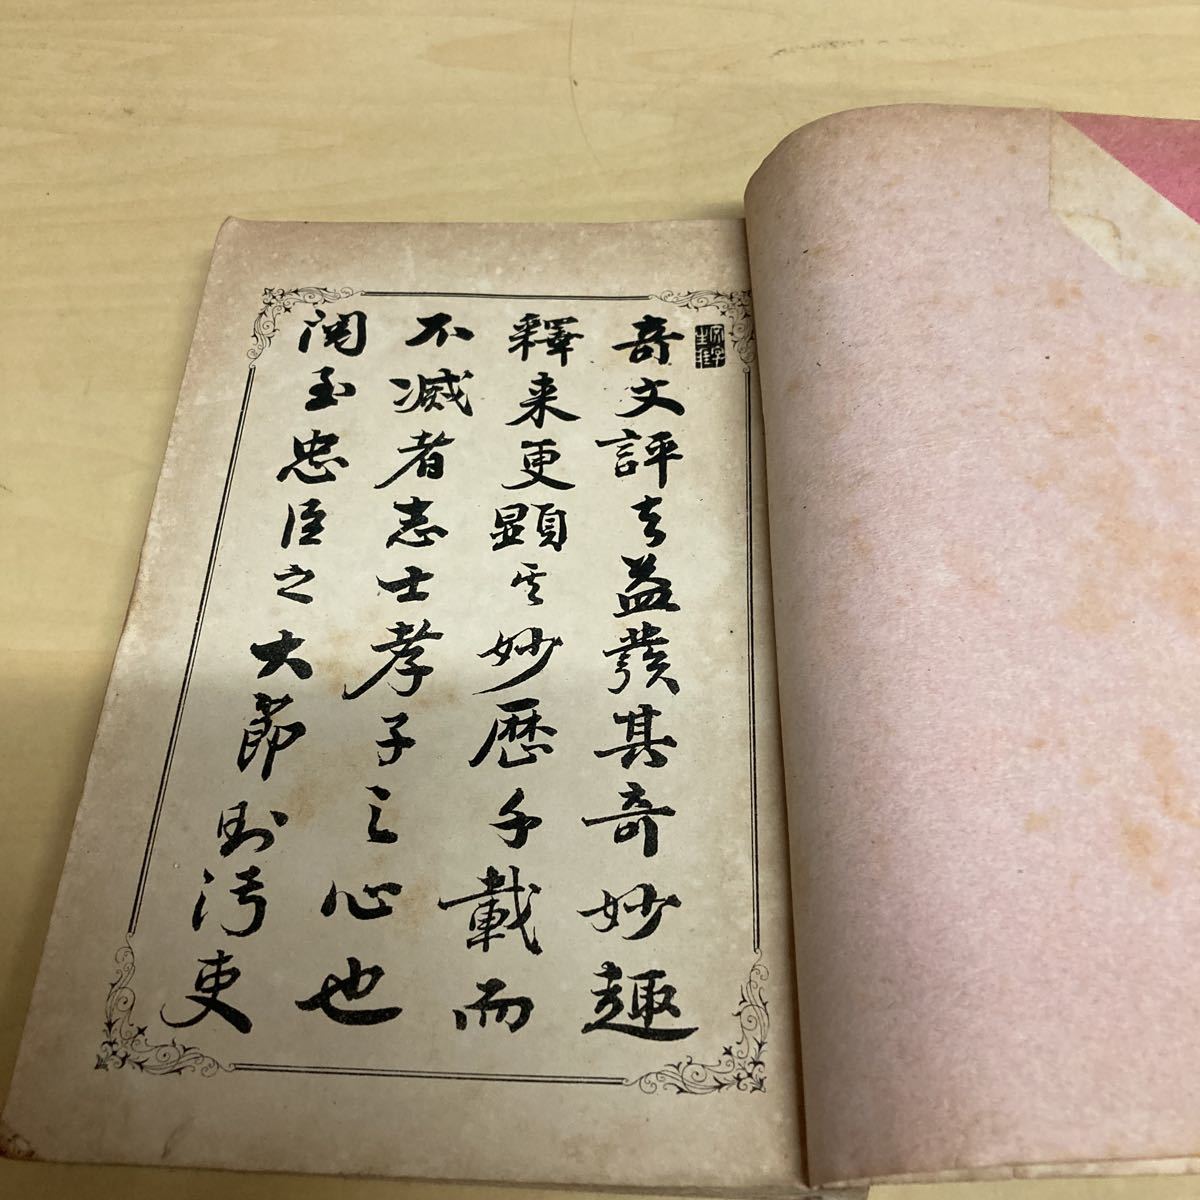 奇文評去益發其奇妙趣
釋来更顕其妙歴千載而
不滅者志士孝子之心也
閲至忠臣之大節則汚吏